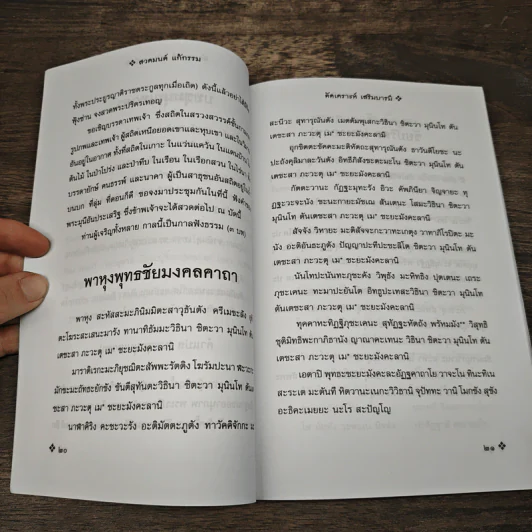 ❖ สวดมนต์ แก้กรรม
ทั้งพระประยูรญาติราชตระกูลทุกเมื่อเถิด) ดังนี้แล้วอย่าได้
ฟุ้งซ่าน จงสวดพระปริตรเทอญ
ขอเชิญบรรดาเทพเจ้า ซึ่งสถิตในสรวงสวรรค์ชั้น
รูปภพและเทพเจ้า ผู้สถิตเหนือยอดเขาและหุบเขา และใน
อันอยู่ในอากาศ ทั้งที่สถิตในเกาะ ในแว่นแคว้น ใน
ต้นไม้ ในป่าโปร่ง และป่าทึบ ในเรือน ในเรือกสวน ในไร่นา
บรรดายักษ์ คนธรรพ์ และนาคา ผู้เป็นสาธุชนอันสถิตอยู่ใน
บนบก ที่ลุ่ม ที่ดอนก็ดี ขอจงมาประชุมกันในที่นี้ ฟัง
พระมุนีอันประเสริฐ ซึ่งข้าพเจ้าจะได้สวดต่อไป ณ บัดนี้
ท่านผู้เจริญทั้งหลาย กาลนี้เป็นกาลฟังธรรม (๓ บท)
พาหุงพุทธชัยมงคลคาถา
พาหุง สะหัสสะมะภินิมมิตะสาวุธันตัง ครีเมขะลัง
ตะโฆระสะเสนะมารัง ทานาทิธัมมะวิธินา ชิตะวา มุนินโท
เตชะสา ภะวะตุ เม* ชะยะมังคะลานิ
มาราติเรกะมะภิยุชฌิตะสัพพะรัตติง โฆรัมปะนา
มักขะมะถัทธะยักขัง ขันตีสุทันตะวิธินา ชิตะวา มุนินโท ตัน
ชะสา ภะวะตุ เม* ชะยะมังคะลานิ
นาฬาคิริง คะชะวะรัง อะติมัตตะภูตัง ทาวัคคิจักกะ
❖ ๒๐
ตัดเคราะห์ เสริมบารมี ❖
สะนีวะ สุทารุณันตัง เมตตัมพุเสกะวิธินา ชิตะวา มุนินโท ตัน
เตชะสา ภะวะตุ เม* ชะยะมังคะลานิ
อุกขิตตะขัคคะมะติหัตถะสุทารุณันตัง ธาวันติโยชะ นะ
ปะถังคุลิมาละวันตัง อิทธิภิสังขะตะมะโน ชิตะวา มุนินโท ตัน
เตชะสา ภะวะตุ เม* ชะยะมังคะลานิ
กัตตะวานะ กัฏฐะมุทะรัง อิวะ คัพภินียา จิญจายะ ทุ
ฏฐะวะจะนัง ชะนะกายะมัชเฌ สันเตนะ โสมะวิธินา ชิตะวา
มุนินโท ตันเตชะสา ภะวะตุ เม* ชะยะมังคะลานิ
สัจจัง วิหายะ มะติสัจจะกะวาทะเกตุง วาทาภิโรปิตะ มะ
นัง อะติอันธะภูตัง ปัญญาปะทีปะชะลิโต ชิตะวา มุนินโท ตัน
เตชะสา ภะวะตุ เม* ชะยะมังคะลานิ
นันโทปะนันทะภุชะคัง วิพุธัง มะหิทธิง ปุตเตนะ เถระ
ภุชะเคนะ ทะมาปะยันโต อิทธูปะเทสะวิธินา ชิตะวา มุนินโท
ตันเตชะสา ภะวะตุ เม* ชะยะมังคะลานิ
ทุคคาหะทิฏฐิภุชะเคนะ สุทัฏฐะหัตถัง พรัหมมัง* วิสุทธิ
ชุติมิทธิพะกาภิธานัง ญาณาคะเทนะ วิธินา ชิตะวา มุนินโท
ตันเตชะสา ภะวะตุ เม* ชะยะมังคะลานิ
เอตาปิ พุทธะชะยะมังคะละอัฏฐะคาถาโย วาจะโน ทินะทิเน
สะระเต มะตันที หิตวานะเนกะวิวิธานิ จุปัททะ วานิ โมกขัง สุขัง
อะธิคะเมยยะ นะโร สะปัญโญ
๒๑ ❖